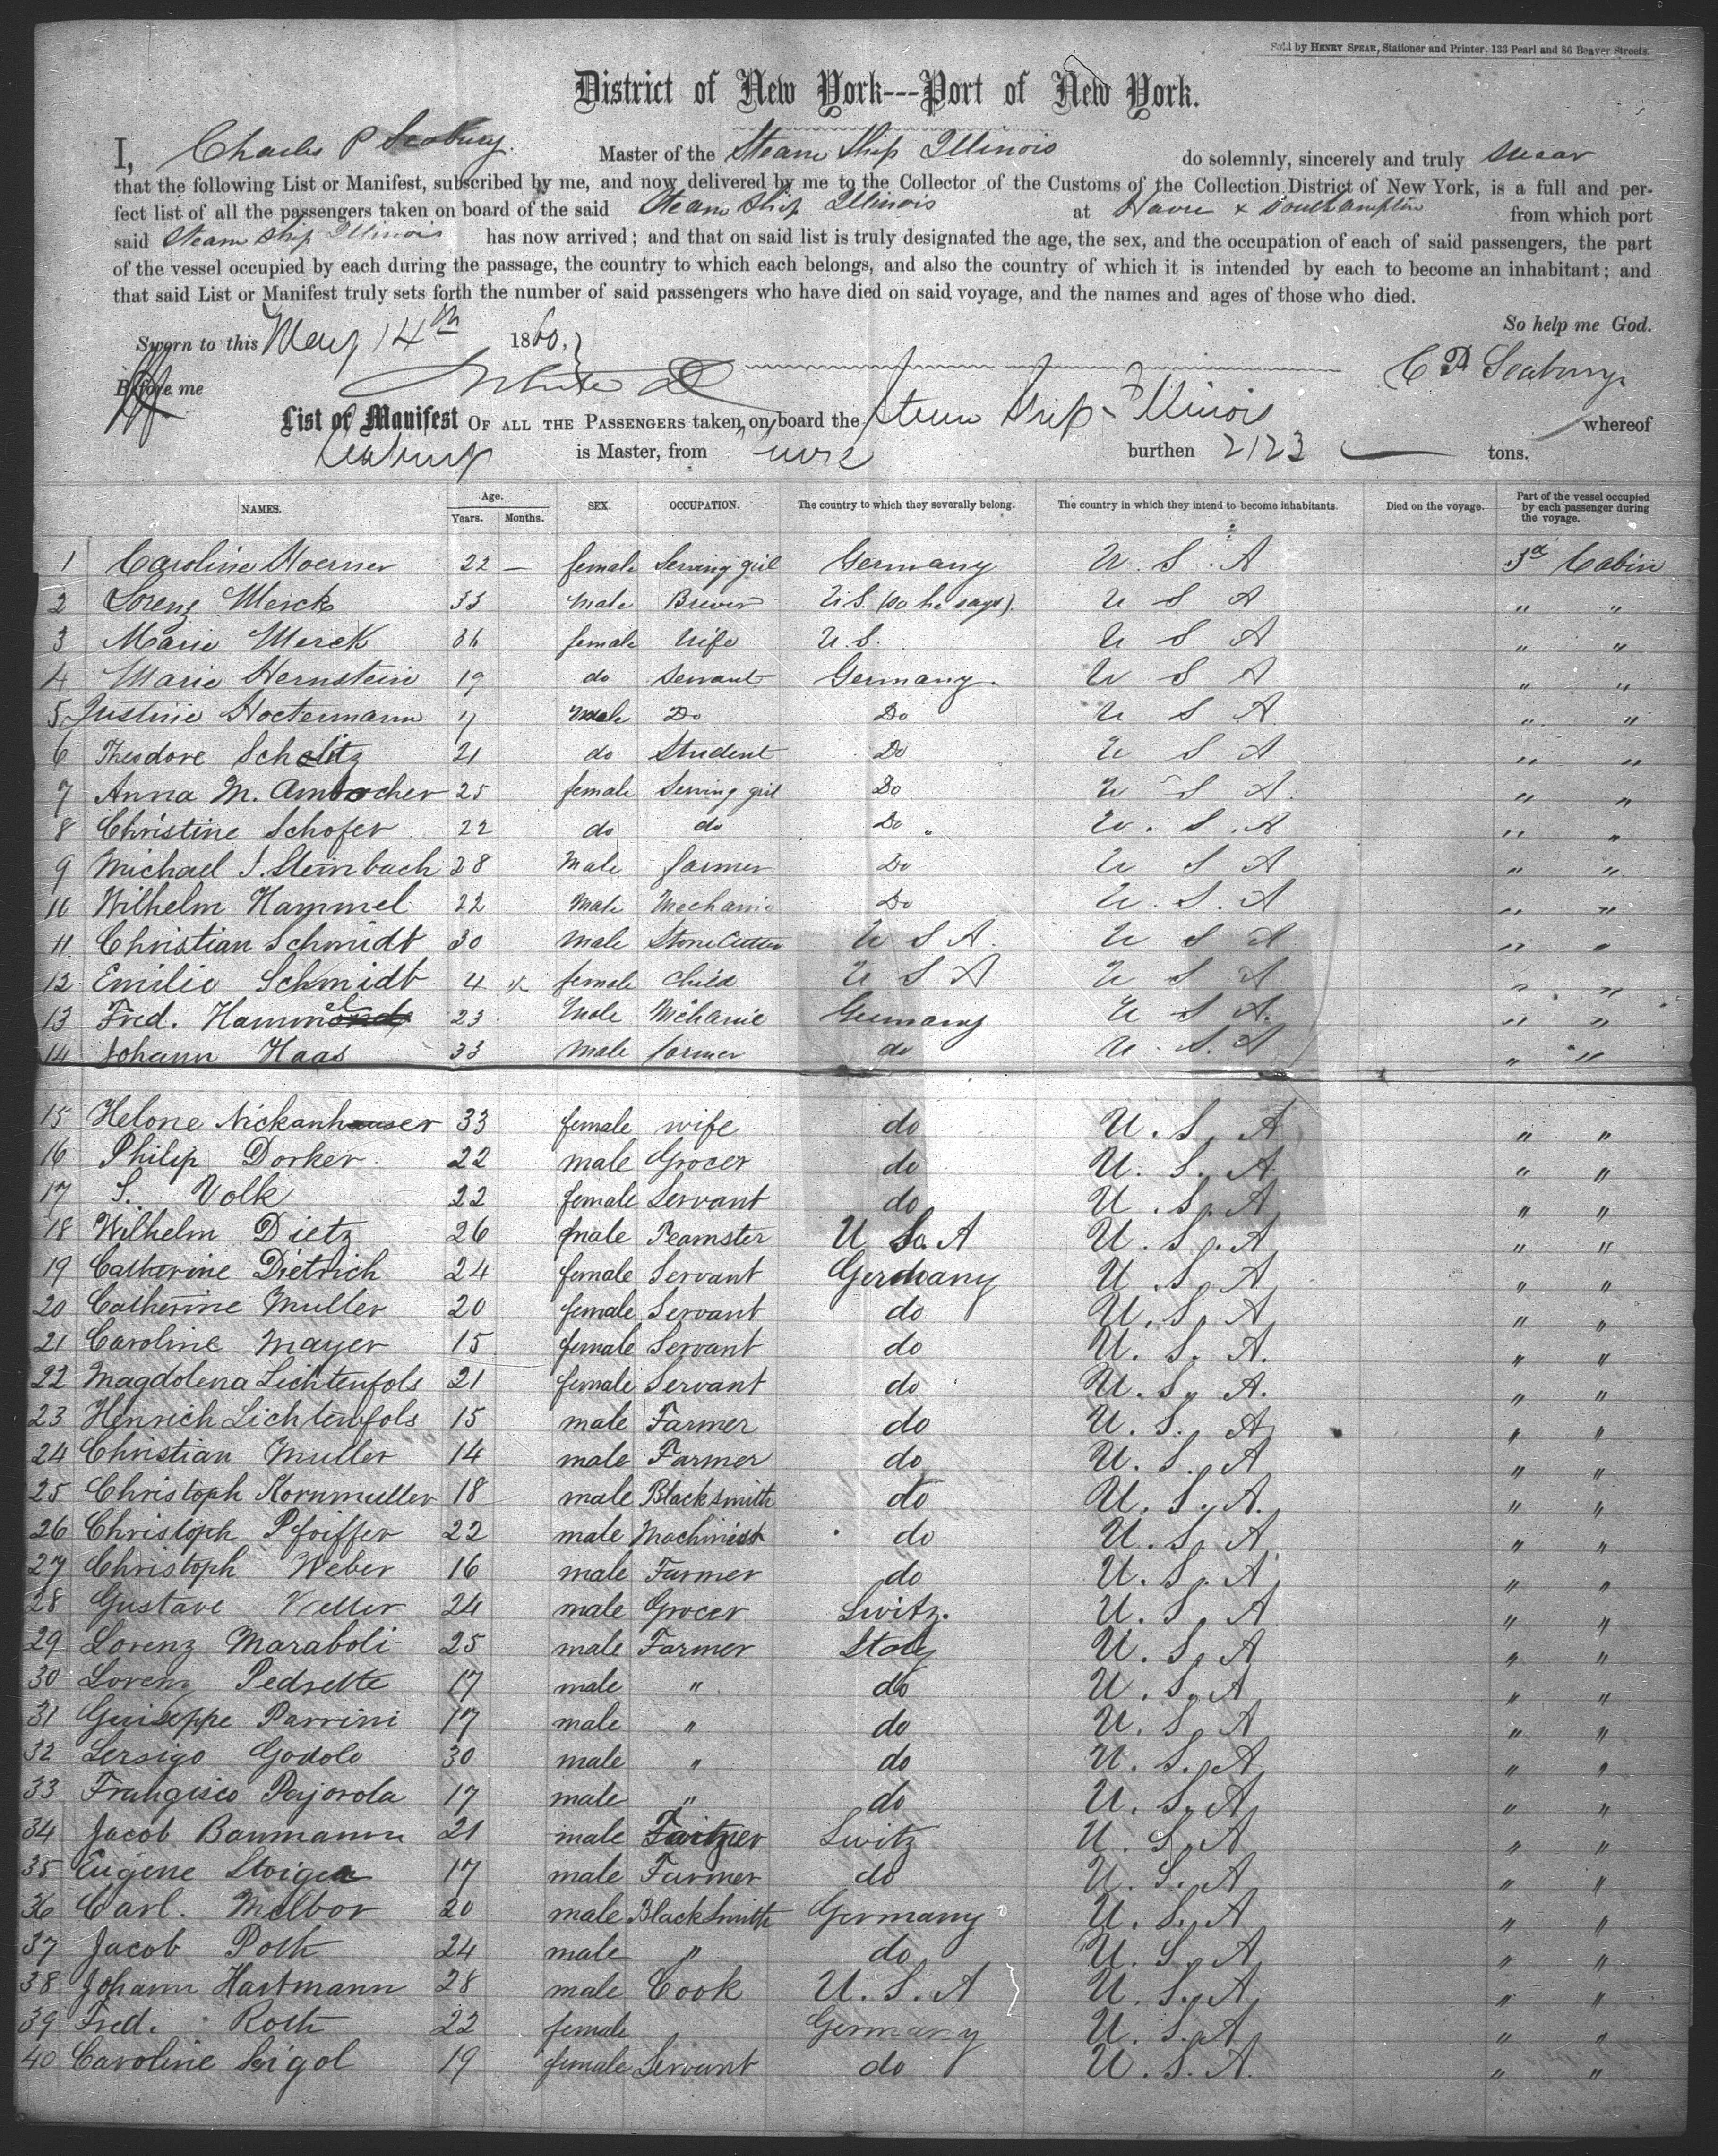 Sold by HENRY SPEAR, Stationer and Printer, 133 Pearl and 86 Beaver Streets.
District of New York---Port of New York.
I, Charles P Seabury. Master of the Steam Ship Illinois do solemnly, sincerely and truly swear
that the following List or Manifest, subscribed by me, and now delivered by me to the Collector of the Customs of the Collection District of New York, is a full and per-
fect list of all the passengers taken on board of the said Steam Ship Illinois at Havre & Southampton from which port
said Steam Ship Illinois has now arrived; and that on said list is truly designated the age, the sex, and the occupation of each of said passengers, the part
of the vessel occupied by each during the passage, the country to which each belongs, and also the country of which it is intended by each to become an inhabitant; and
that said List or Manifest truly sets forth the number of said passengers who have died on said voyage, and the names and ages of those who died.
So help me God.
Sworn to this May 14th 1860.
C P Seabury
Before me
List or Manifest OF ALL THE PASSENGERS taken on board the Steam Ship Illinois whereof
Seabury is Master, from Havre burthen 2123 tons.
NAMES. Age. Years. Months. SEX. OCCUPATION. The country to which they severally belong. The country in which they intend to become inhabitants. Died on the voyage. Part of the vessel occupied by each passenger during the voyage.
1 Caroline Hoerner 22 — female Serving girl Germany U. S. A 3d Cabin
2 Lorenz Merck 33 male Brewer U.S. (so he says). U S A " "
3 Marie Merck 36 female Wife U. S. U S A " "
4 Marie Hernstein 19 do Servant Germany. U S A " "
5 Justine Hoetermann 17 Male Do Do U S A " "
6 Theodore Scholtz 21 do Student Do U S A " "
7 Anna M. Ambrocher 25 female Serving girl Do U S A. " "
8 Christine Schofer 22 do do Do " U. S. A " "
9 Michael J. Steinbach 28 Male farmer Do U S A " "
10 Wilhelm Hammel 22 Male Mechanic Do U. S. A " "
11 Christian Schmidt 30 Male Stone Cutter U S A. U S A " "
12 Emilie Schmidt 4 female Child U S A U S A " "
13 Fred. Hammel 23 Male Mechanic Germany U S A. " "
14 Johann Haas 33 Male farmer do U. S. A " "
15 Helone Nickanhauser 33 female wife do U. S. A " "
16 Philip Dorker 22 male Grocer do U. S. A " "
17 S. Volk 22 female Servant do U. S. A " "
18 Wilhelm Dietz 26 male Teamster U So. A U. S. A " "
19 Catharine Dietrich 24 female Servant Germany U. S. A " "
20 Catherine Muller 20 female Servant do U. S. A " "
21 Caroline Mayer 15 female Servant do U. S. A. " "
22 Magdolena Lichtenfols 21 female Servant do U. S. A. " "
23 Heinrich Lichtenfols 15 male Farmer do U. S. A " "
24 Christian Muller 14 male Farmer do U. S. A " "
25 Christoph Kornmuller 18 male Blacksmith do U. S. A. " "
26 Christoph Pfoiffer 22 male Machinist do U. S. A " "
27 Christoph Weber 16 male Farmer do U. S. A " "
28 Gustave Vetter 24 male Grocer Switz. U. S. A " "
29 Lorenz Maraboli 25 male Farmer Italy U. S. A " "
30 Lorenz Pedrette 17 male " do U. S. A " "
31 Guiseppe Parrini 17 male " do U. S. A " "
32 Lersigo Godolo 30 male " do U. S. A " "
33 Frangisco Pajorola 17 male " do U. S. A " "
34 Jacob Baumann 21 male Farmer Switz U. S. A " "
35 Eugene Stoiger 17 male Farmer do U. S. A " "
36 Carl. Melbor 20 male Blacksmith Germany U. S. A " "
37 Jacob Poth 24 male " do U. S. A " "
38 Johann Hartmann 28 male Cook U. S. A U. S. A " "
39 Fred. Roth 22 female Germany U. S. A " "
40 Caroline Seigol 19 female Servant do U. S. A. " "